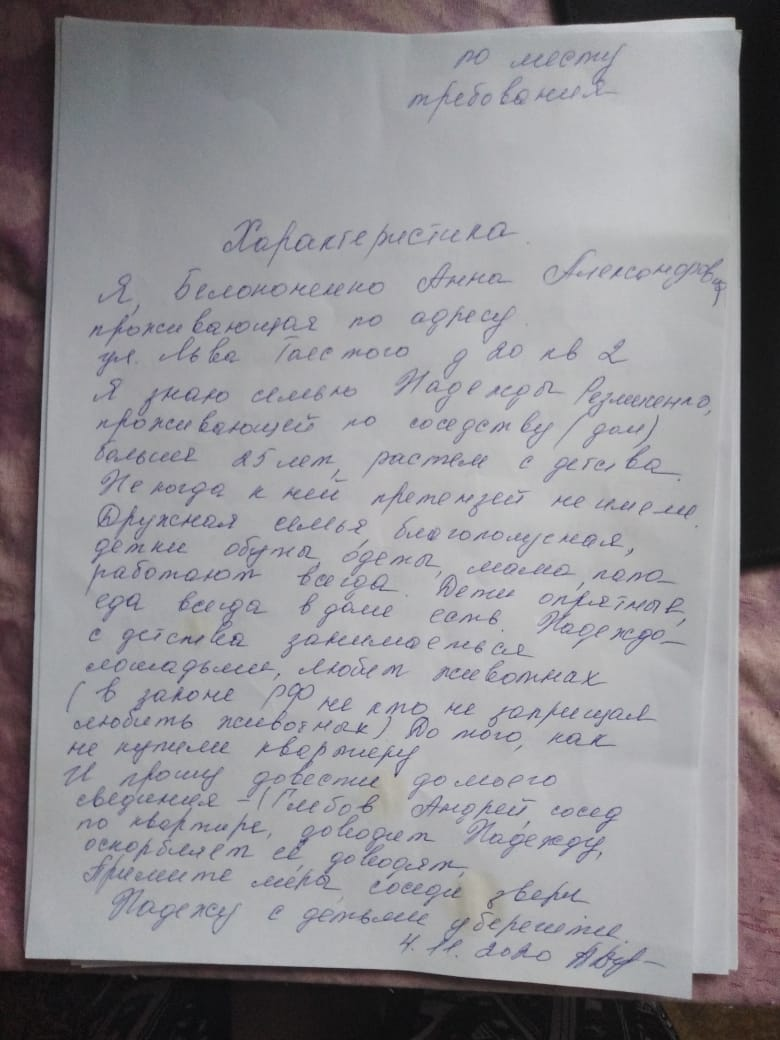 по месту
требования
Характеристика
Я, Белоконенко Анна Александровна
проживающая по адресу
ул. Льва Толстого д 20 кв 2
Я знаю семью Надежды
проживающей по соседству (дом)
больше 25 лет, растем с детства.
Не когда к ней претензей не имели.
Дружная семья, благополусная,
детки обуты одеты, мама, папа
работают всегда. Дети опрятные,
еда всегда в доме есть. Надежда
с детства занимаеться
лошадьми, любит животных
(в законе РФ не кто не заприщал
любить животных) До того, как
не купили квартиру
И прошу довести до моего
сведения - (Глебов Андрей, сосед
по квартире, доводит Надежду,
оскорбляет её, доводят,
Примите мера, соседи звери
Надежу с детьми уберегите.
4.11.2020